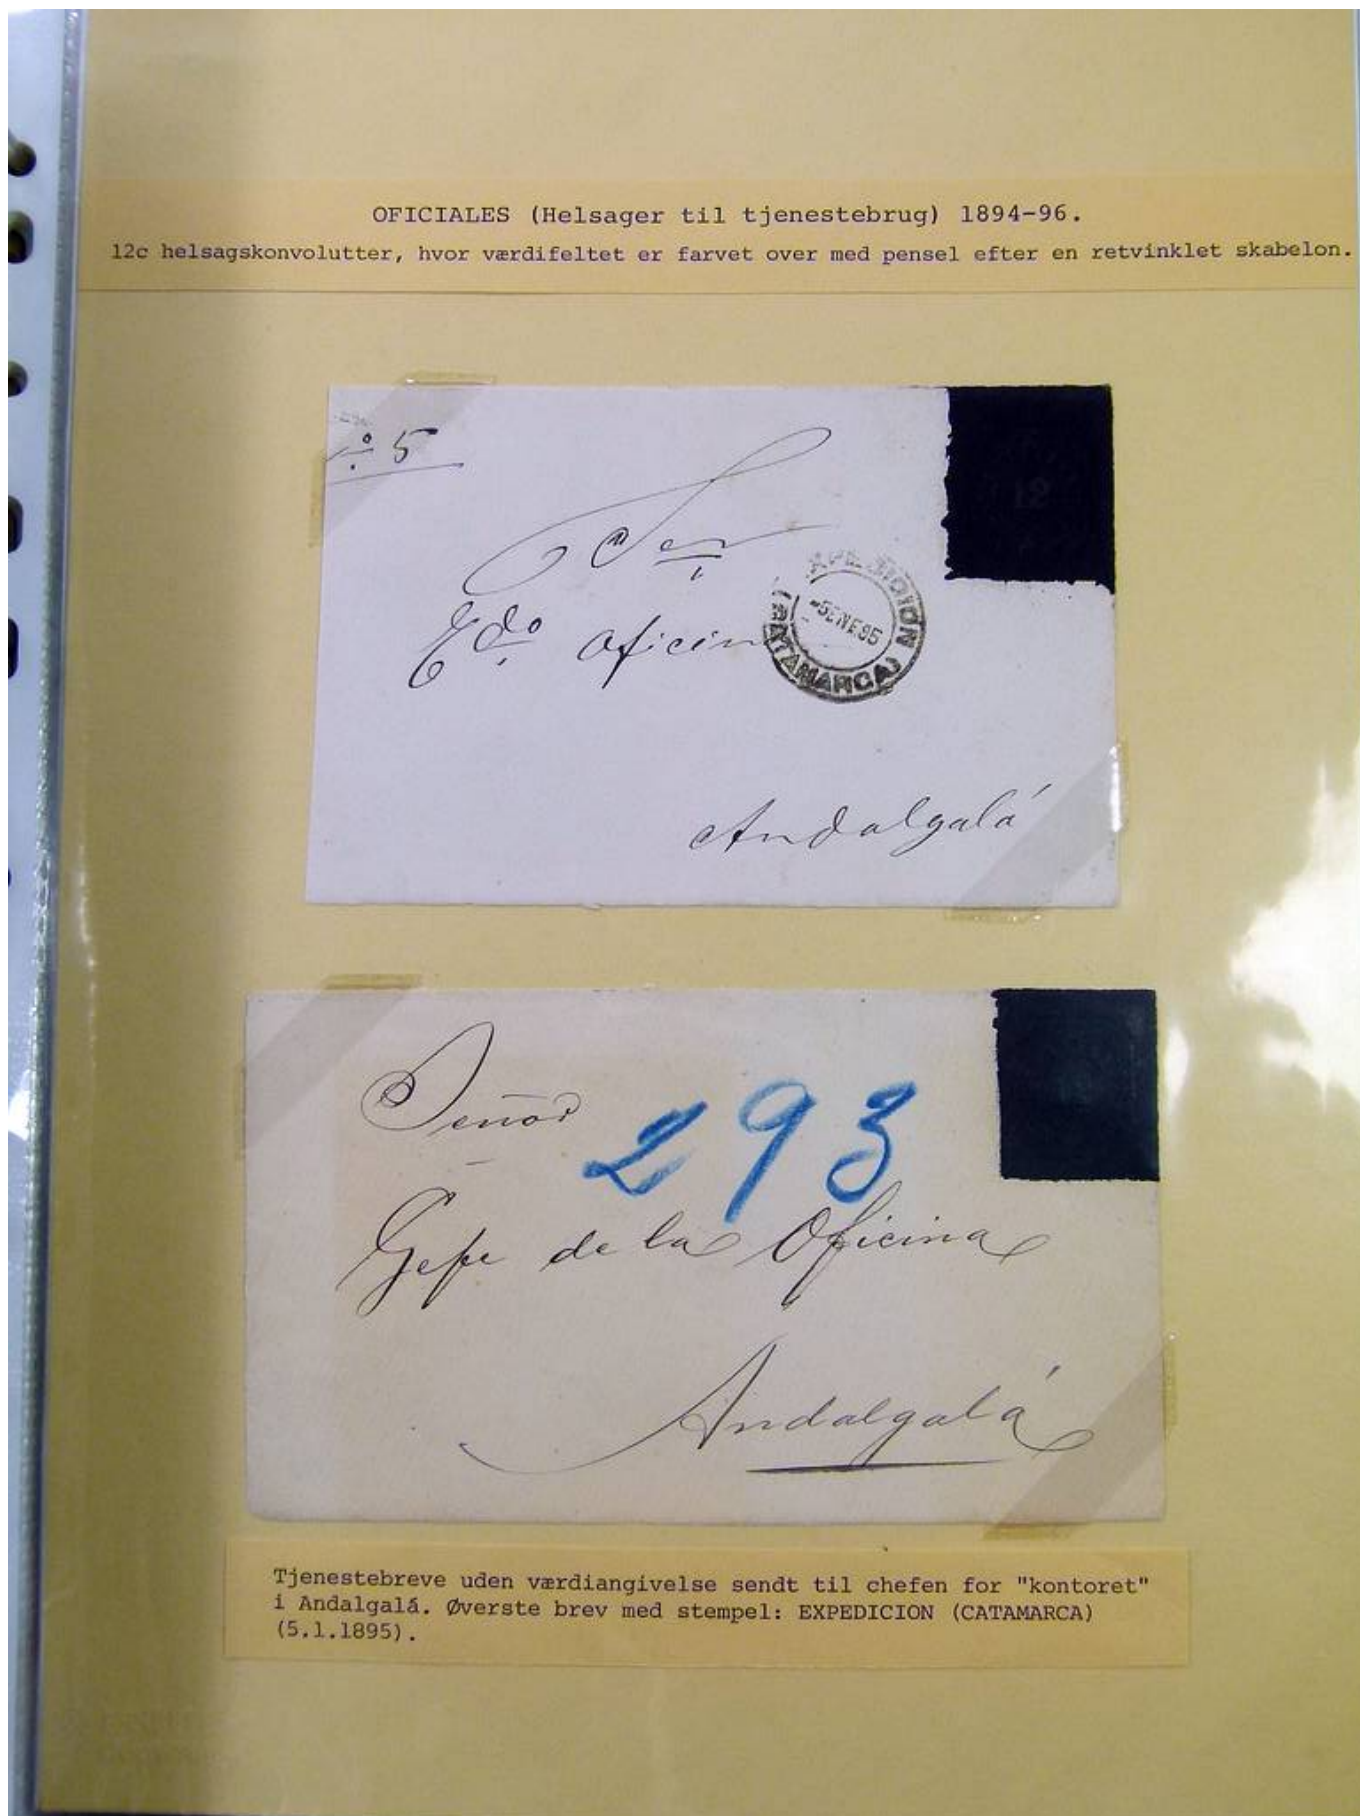 OFICIALES (Helsager til tjenestebrug) 1894-96.
12c helsagskonvolutter, hvor værdifeltet er farvet over med pensel efter en retvinklet skabelon.
5
12
Sen
Edo oficina
EXPEDICION
-5ENE95
(CATAMARCA)
Andalgalá
Señor
293
Gefe de la Oficina
Andalgalá
Tjenestebreve uden værdiangivelse sendt til chefen for "kontoret"
i Andalgalá. Øverste brev med stempel: EXPEDICION (CATAMARCA)
(5.1.1895).